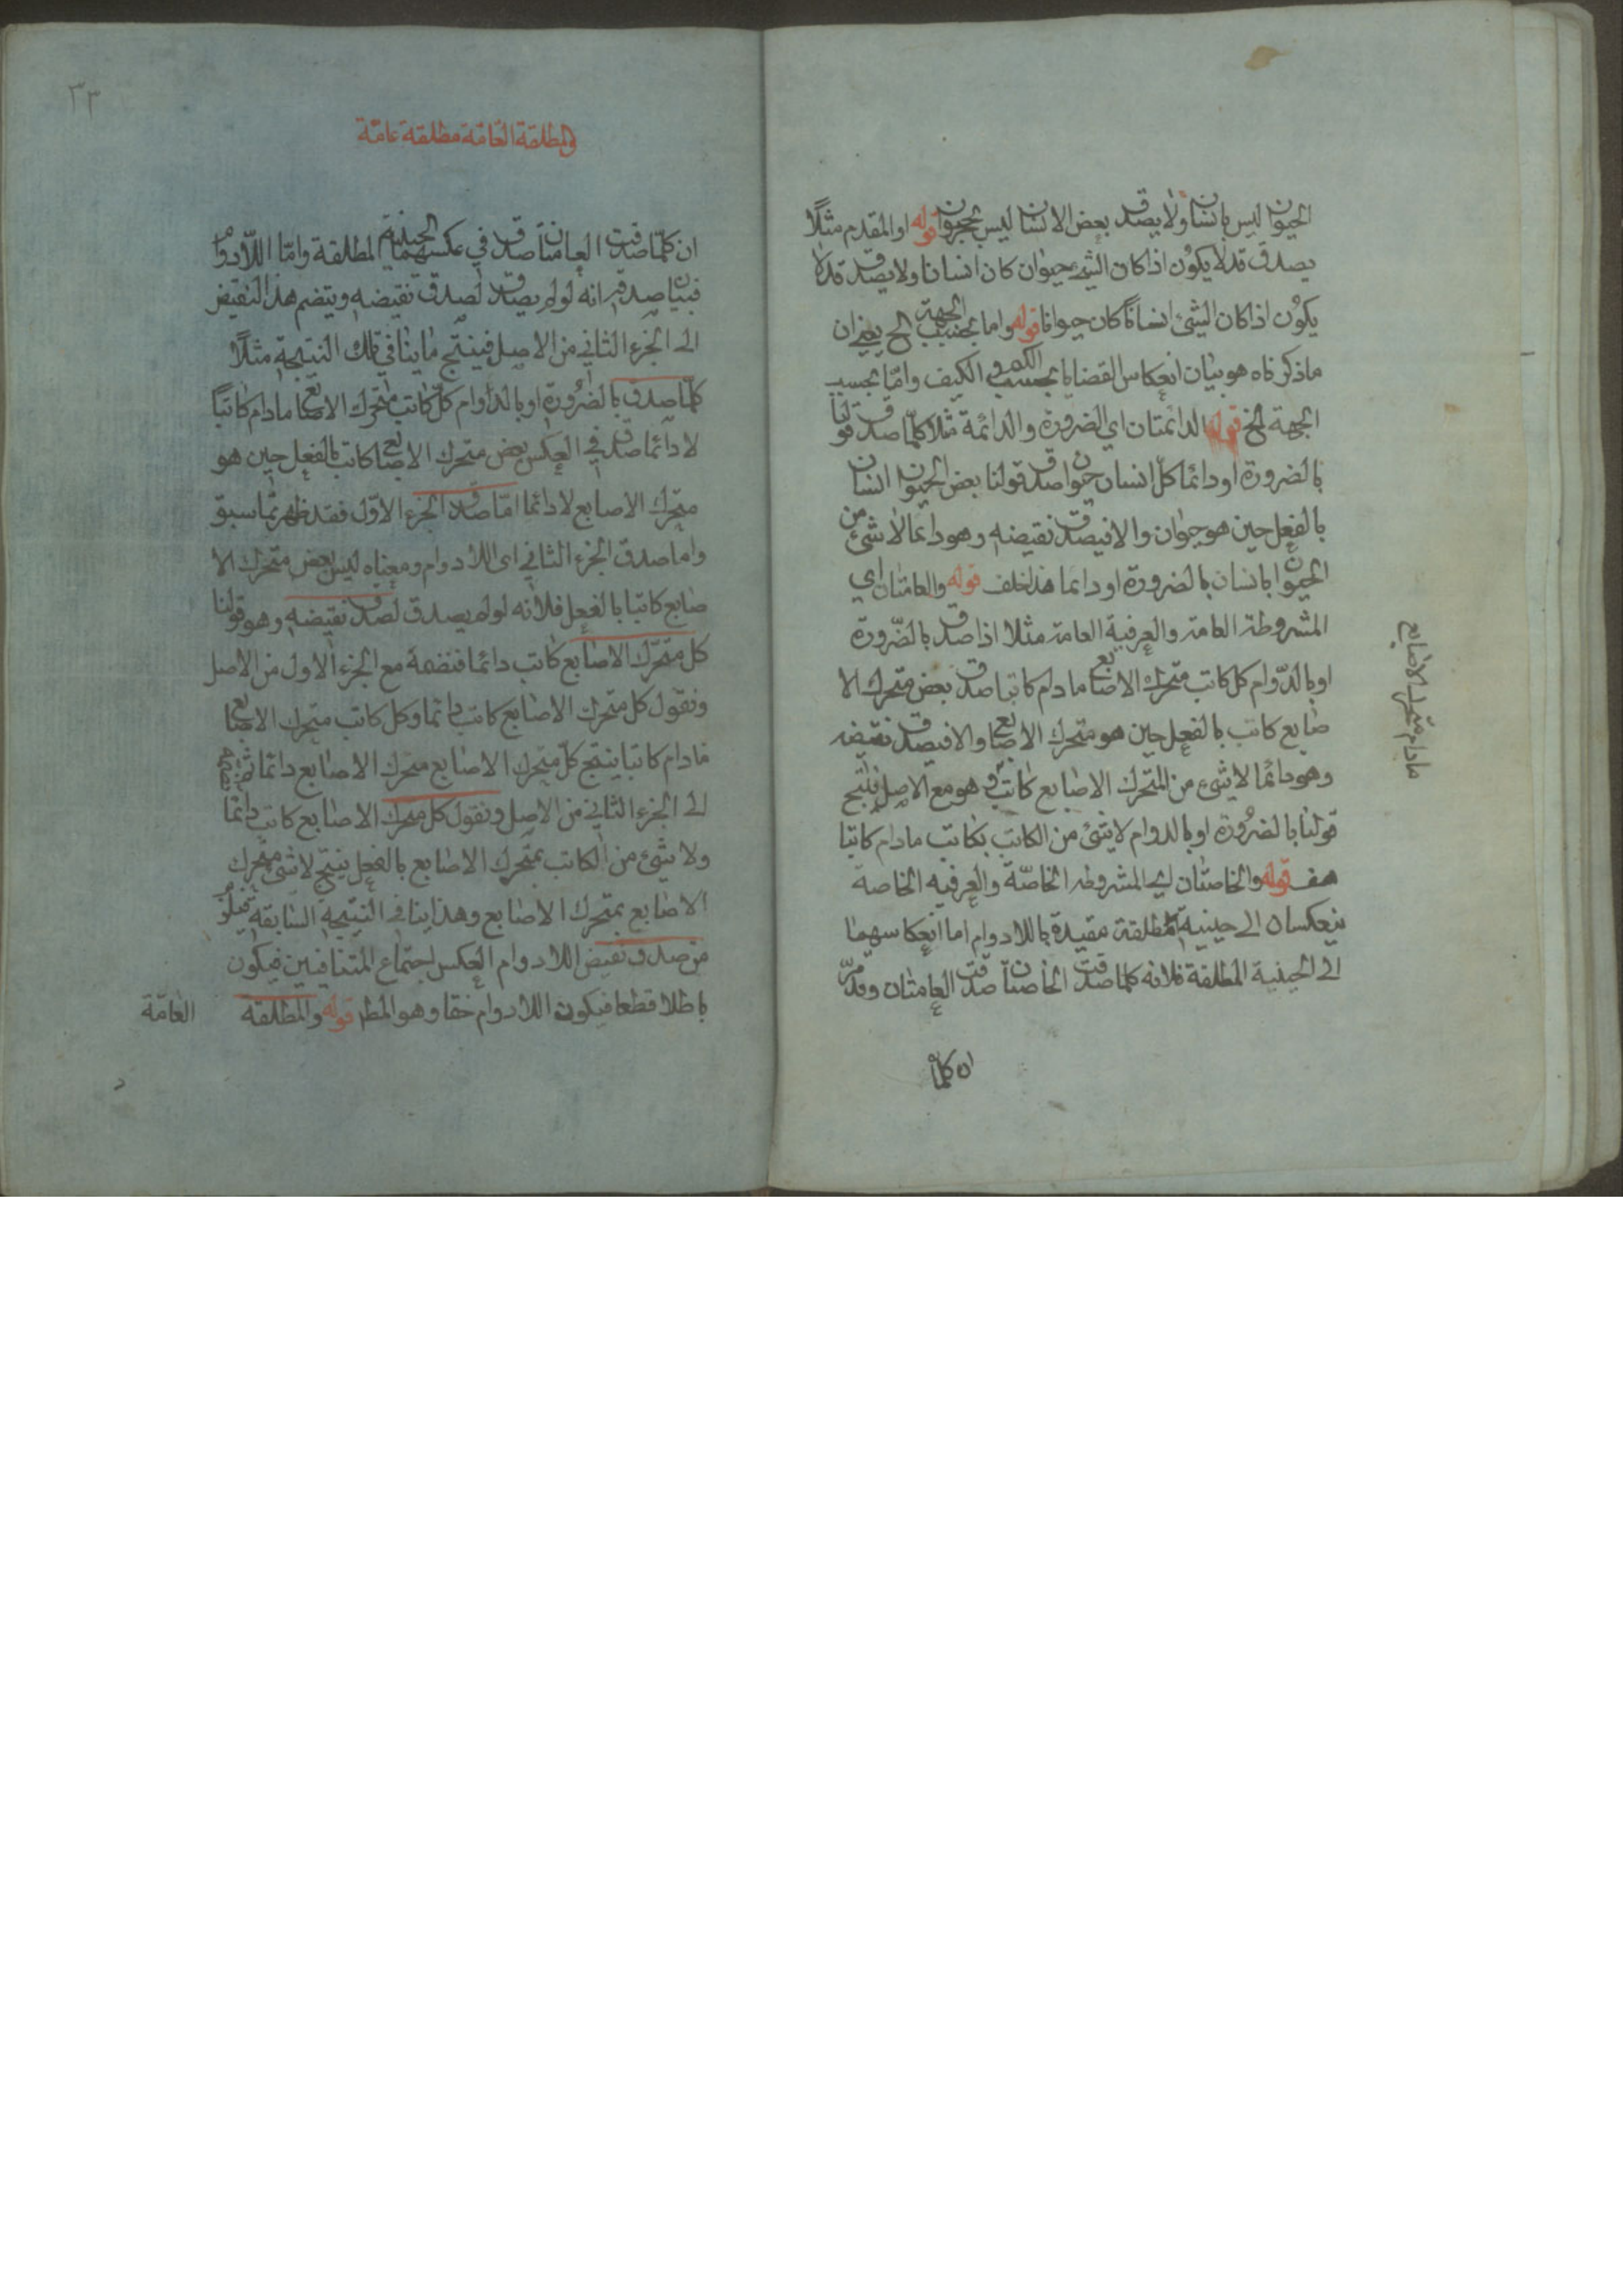 الحيوان ليس بانسان ولا يصدق بعض الانسان ليس بحيوان قوله او المقدم مثلًا
يصدق قد لا يكون اذا كان الشئ حيوان كان انسانا ولا يصدق قد لا
يكون اذا كان الشئ انسانًا كان حيوانا قوله واما بحسب الجهة الخ يعني ان
ماذكرناه هو بيان انعكاس القضايا بحسب الكم و الكيف وامّا بحسب
الجهة الخ قوله الدائمتان اي الضرورة والدائمة مثلا كلّما صدق قولنا
بالضرورة اودائما كلّ انسان حيوان صدق قولنا بعض الحيوان انسان
بالفعل حين هو حيوان والا فيصدق نقيضه وهو دائما لا شئ من
الحيوان بانسان بالضرورة او دائما هذا خلف قوله والعامتان اي
المشروطة العامة والعرفية العامة مثلا اذا صدق بالضّرورة
اوبالدّوام كل كاتب متحرك الاصابع مادام كاتبا صدق بعض متحرك الا
صابع كاتب بالفعل حين هو متحرك الاصابع والا فيصدق نقيضه
وهو دائما لا شئ من المتحرك الاصابع كاتب و هو مع الاصل ينتج
قولنا بالضرورة او بالدوام لا شئ من الكاتب بكاتب مادام كاتبا
هف قوله والخاصتان اي المشروطه الخاصّة والعرفيه الخاصة
ينعكسان الى حينية مطلقة مقيدة باللادوام اما انعكاسهما
الى الحينية المطلقة فلانه كلما صدقت الخاصتان صدقت العامتان وقد مرّ
ان كلما
مادام متحرك الاصابع
٣٣
في المطلقة العّامّة مطلقة عامّة
ان كلّما صدقت العامتان صدق في عكسهما الحينية المطلقة وامّا اللّادوام
فبيان صدقه انه لولم يصدق لصدق نقيضه ويتضم هذا النقيض
الى الجزء الثاني من الاصل فينتج ماينافي تلك النتيجة مثلًا
كلّما صدق بالضرورة اوبالدوام كلّ كاتب متحرك الاصابع مادام كاتبًا
لا دائما صدق في العكس بعض متحرك الاصابع كاتب بالفعل حين هو
متحرك الاصابع لا دائما امّا صدق الجزء الاوّل فقد ظهر ممّا سبق
واما صدق الجزء الثاني اى اللادوام ومعناه ليس بعض متحرك الا
صابع كاتبا بالفعل فلأنه لولم يصدق لصدق نقيضه وهو قولنا
كل متحرّك الاصابع كاتب دائما فنضمه مع الجزء الاول من الاصل
ونقول كل متحرك الاصابع كاتب دائما وكل كاتب متحرك الاصابع
مادام كاتبا ينتج كلّ متحرك الاصابع متحرك الاصابع دائما ثم نضمه
الى الجزء الثاني من الاصل ونقول كل متحرك الاصابع كاتب دائما
ولا شئ من الكاتب بمتحرك الاصابع بالفعل ينتج لا شئ من متحرك
الاصابع بمتحرك الاصابع وهذا ينافي النتيجة السّابقة فيلزم
من صدق نقيض اللادوام العكس اجتماع المتنافيين فيكون
باطلا قطعا فيكون اللادوام حقا وهو المط قوله والمطلقة
العامّة